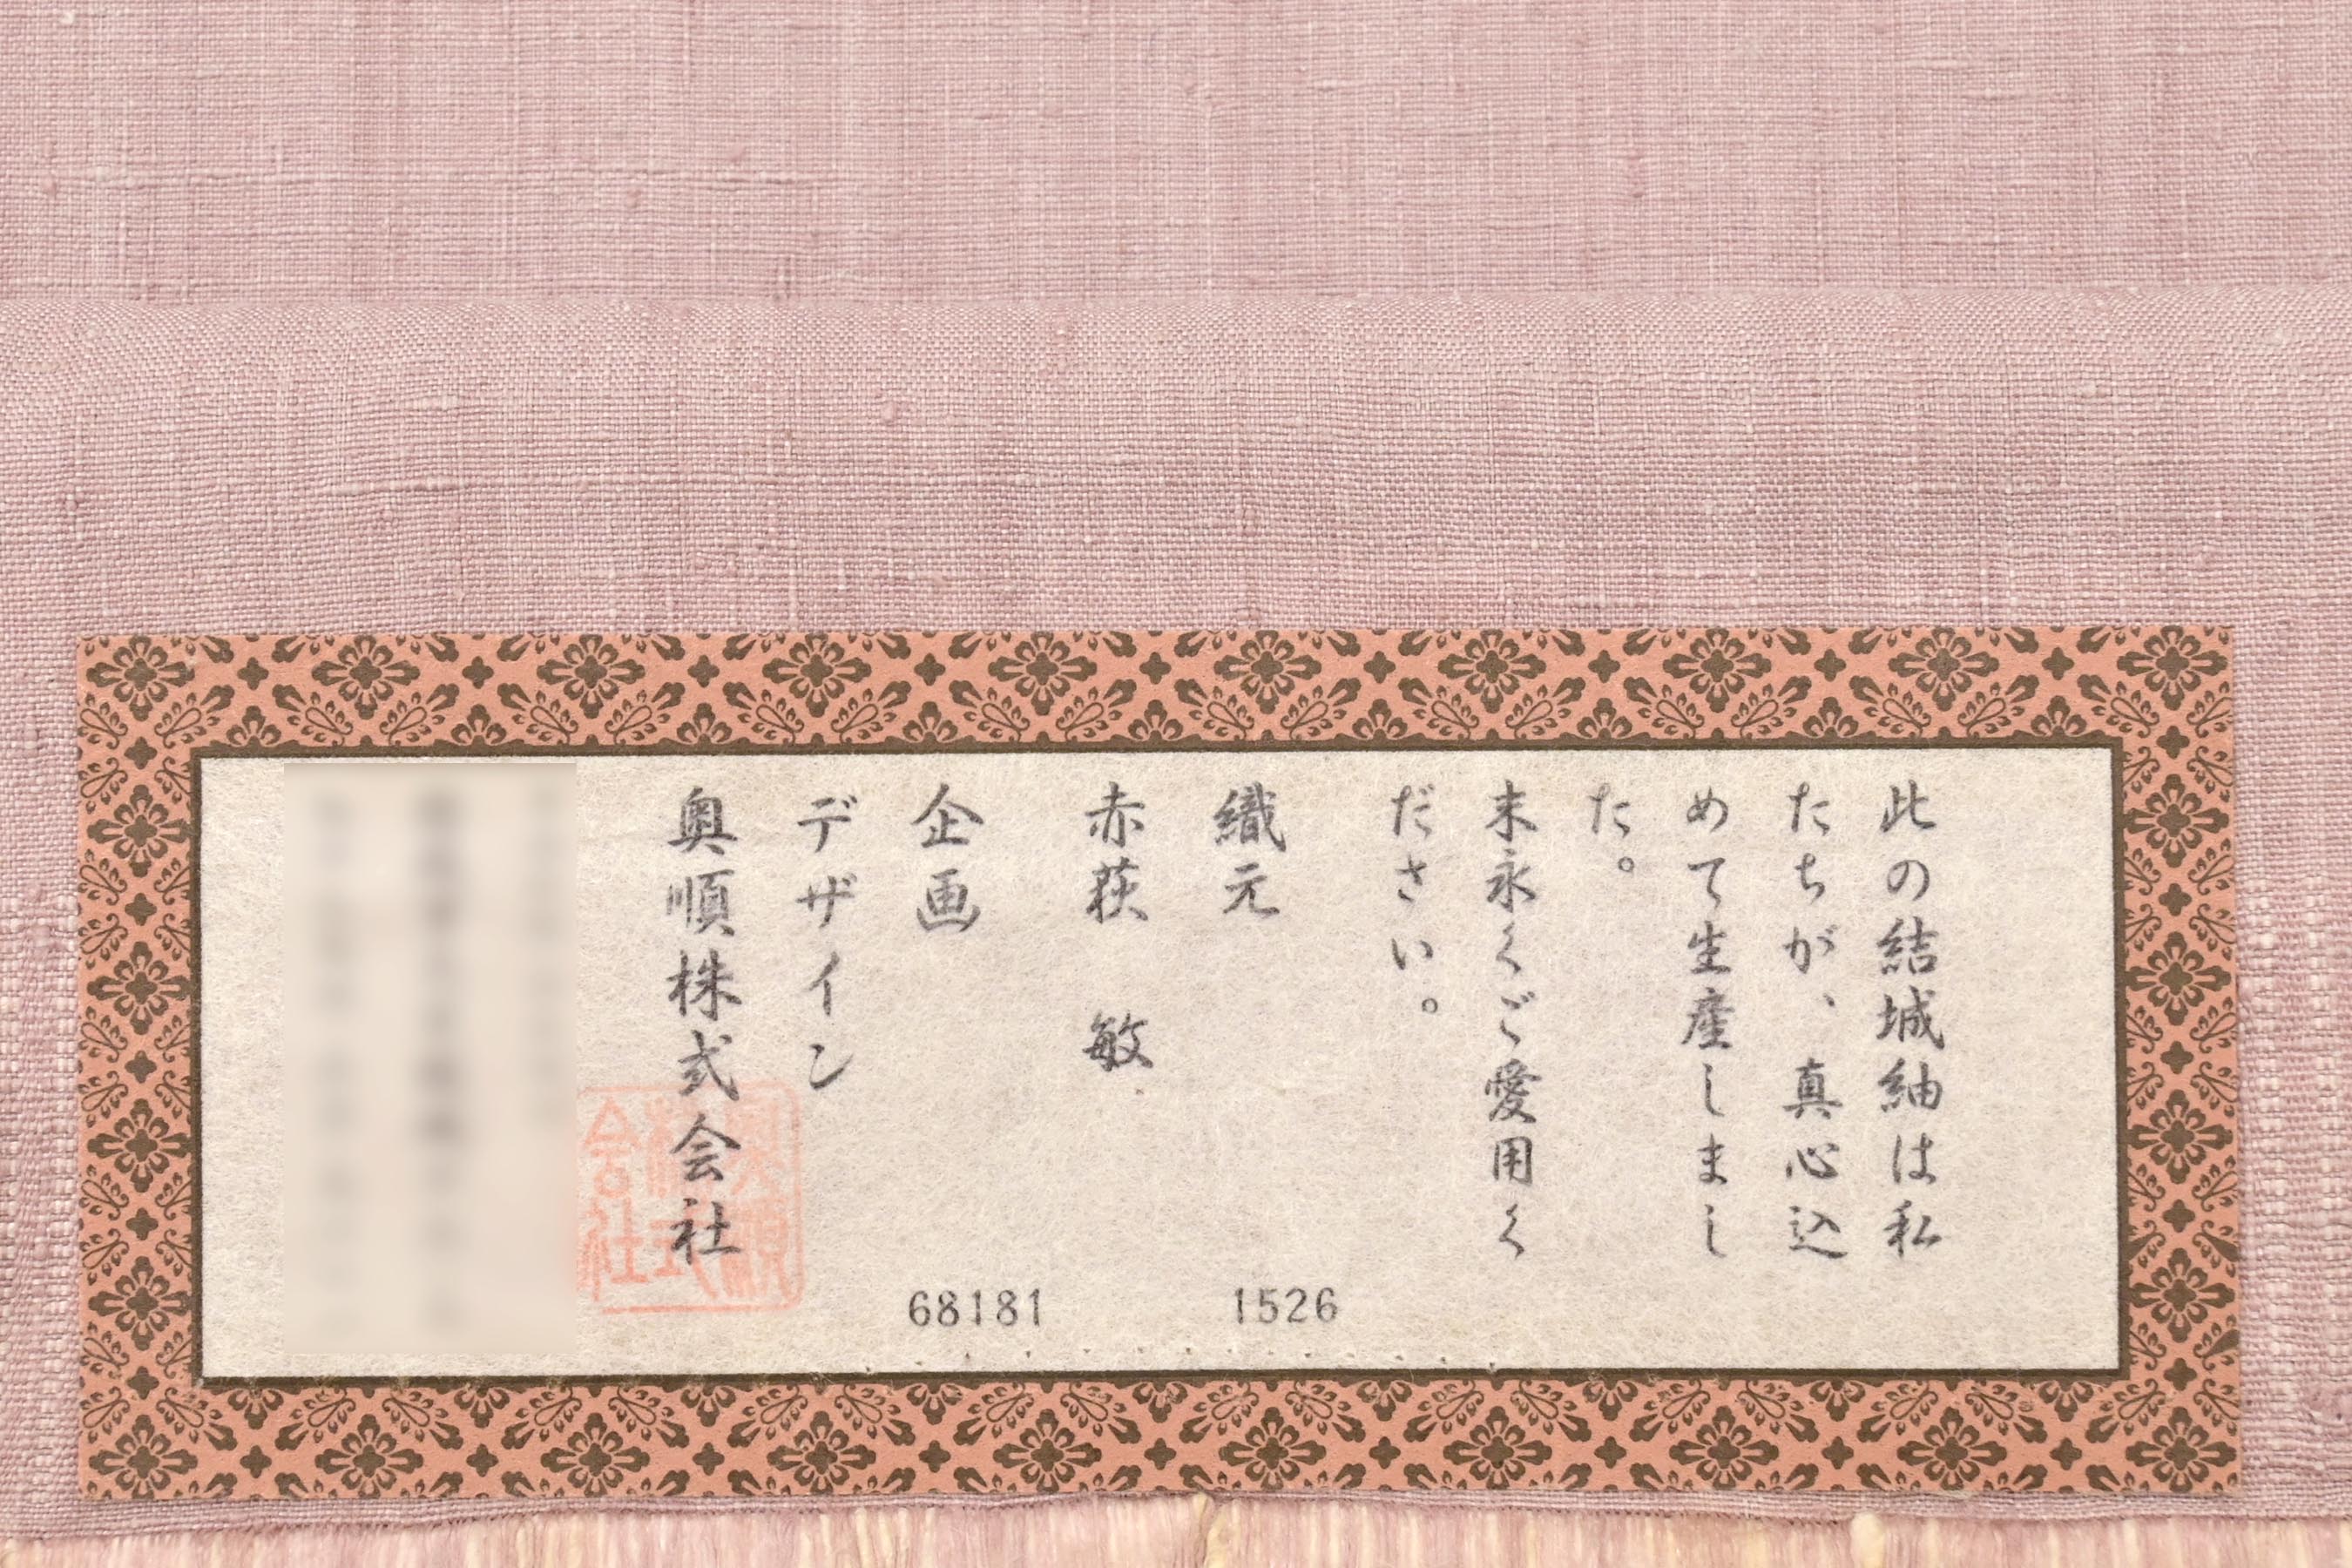 此の結城紬は私
たちが、真心込
めて生産しまし
た。
末永くご愛用く
ださい。
織元
1526
赤荻 敏
企画
68181
デザイン
奥順株式会社
奥順
株式
会社